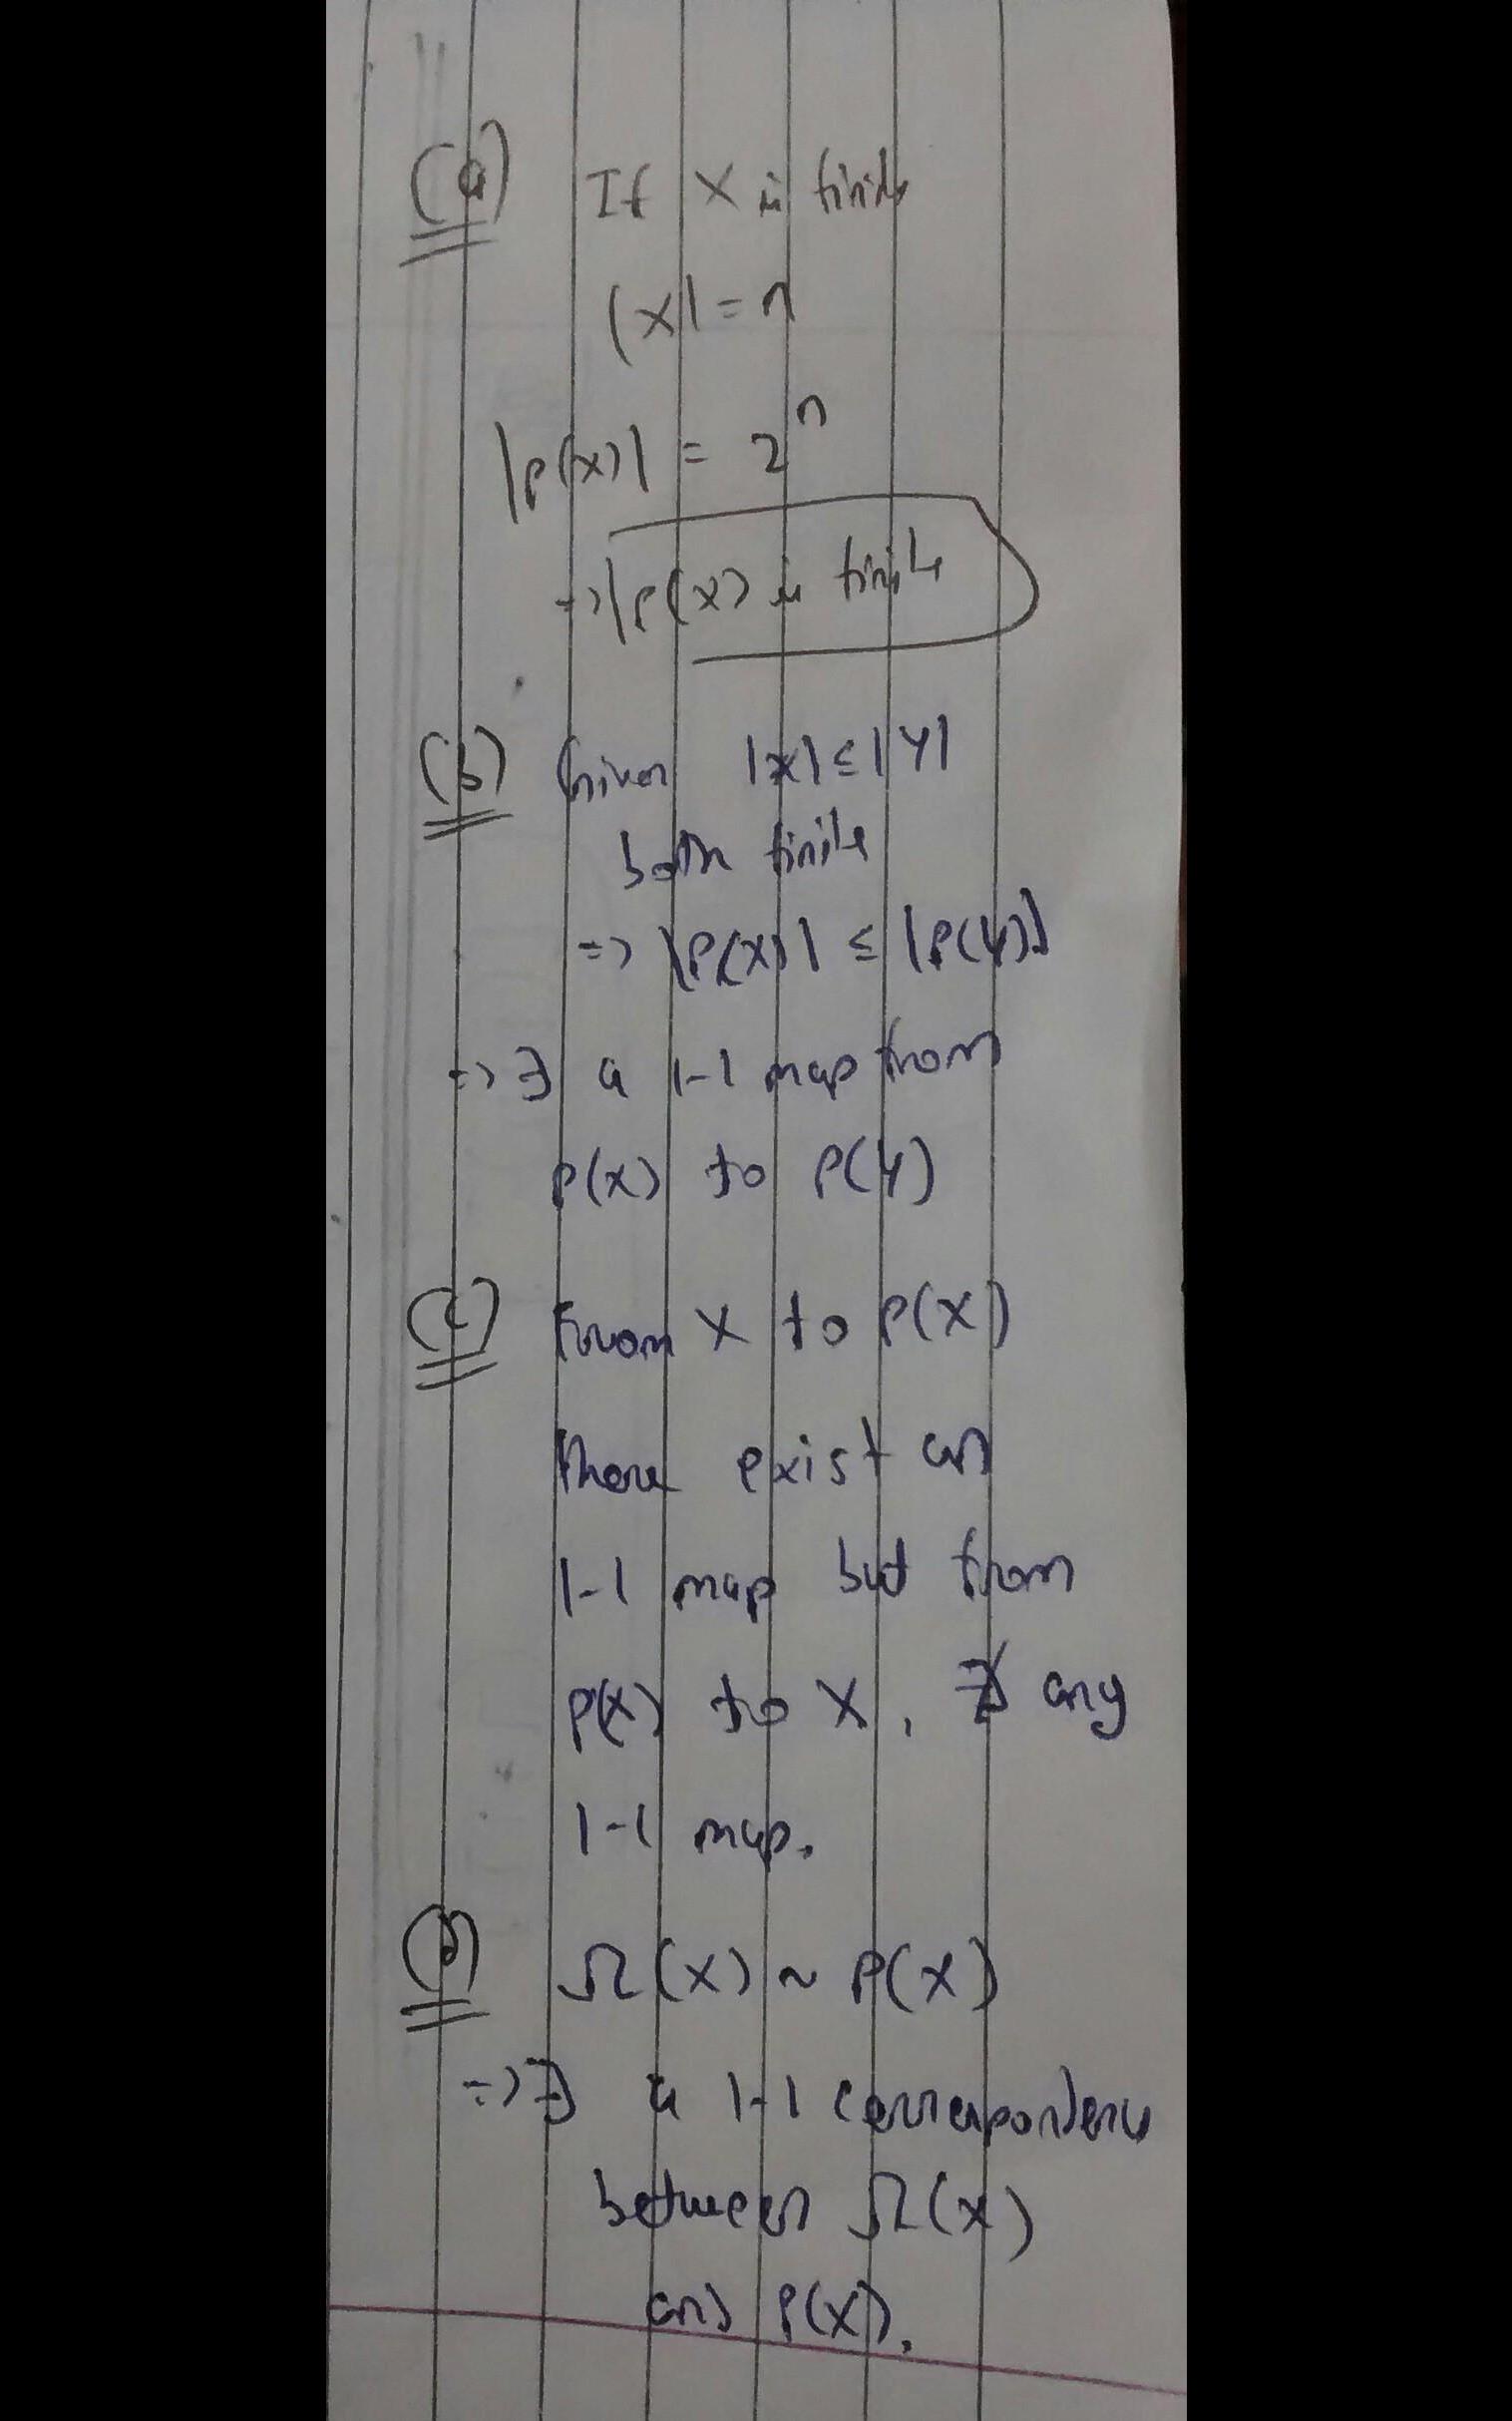 (a) If X is finite
|X| = n
|P(X)| = 2^n
=> |P(X) is finite
(b) Given |X| ≤ |Y|
both finite
=> |P(X)| ≤ |P(Y)|
=> ∃ a 1-1 map from
P(X) to P(Y)
(c) From X to P(X)
there exist an
1-1 map but from
P(X) to X, ∄ any
1-1 map.
(d) Ω(X) ~ P(X)
=> ∃ a 1-1 correspondence
between Ω(X)
and P(X).